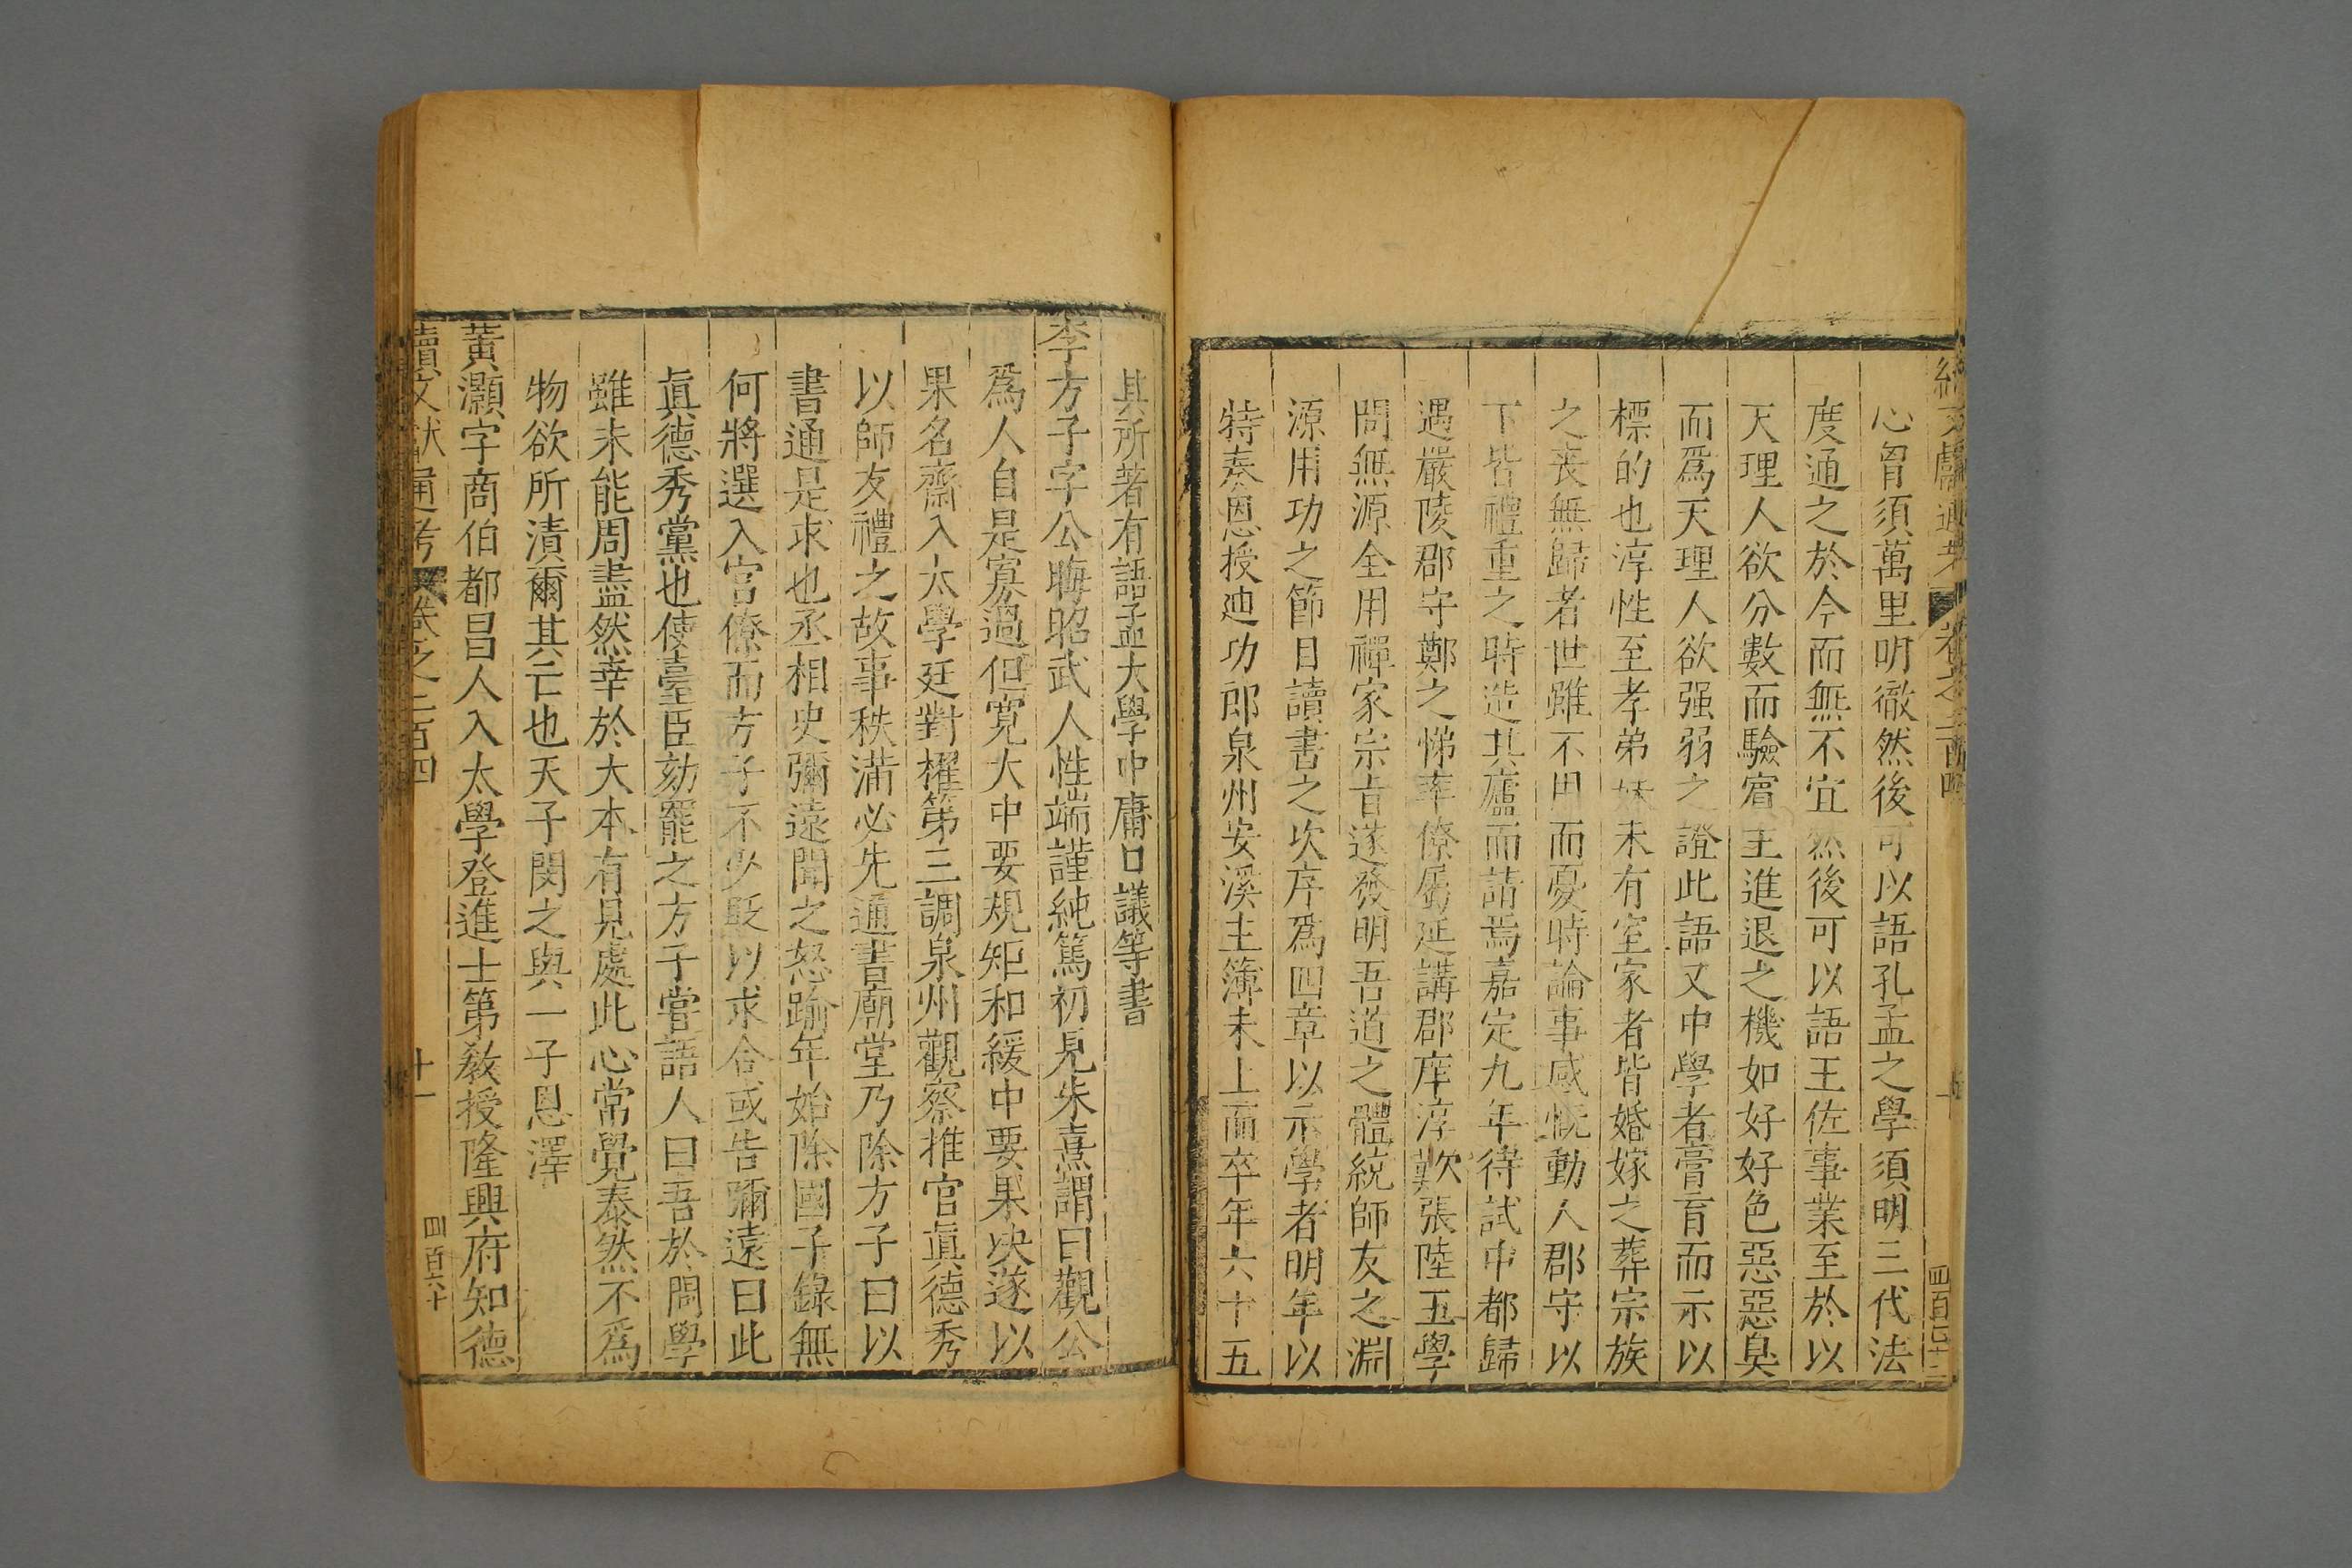 心胷須萬里明徹然後可以語孔孟之學須明三代法
度通之於今而無不宜然後可以語王佐事業至於以
天理人欲分數而驗賔主進退之機如好好色惡惡臭
而爲天理人欲强弱之證此語又中學者膏肓而示以
標的也淳性至孝弟妹未有室家者皆婚嫁之葬宗族
之喪無歸者世雖不用而憂時論事感慨動人郡守以
下皆禮重之時造其廬而請焉嘉定九年待試中都歸
遇嚴陵郡守鄭之悌率僚屬延講郡庠淳歎張陸五學
問無源全用禪家宗旨遂發明吾道之體統師友之淵
源用功之節目讀書之次序爲四章以示學者明年以
特奏恩授廸功郎泉州安溪主簿未上而卒年六十五
其所著有語孟大學中庸口議等書
李方子字公晦昭武人性端謹純篤初見朱熹謂曰觀公
爲人自是寡過但寛大中要規矩和緩中要果决遂以
果名齋入太學廷對擢第三調泉州觀察推官眞德秀
以師友禮之故事秩滿必先通書廟堂乃除方子曰以
書通是求也丞相史彌遠聞之怒踰年始除國子錄無
何將選入宮僚而方子不少貶以求合或告彌遠曰此
眞德秀黨也使臺臣劾罷之方子嘗語人曰吾於問學
雖未能周盡然幸於大本有見處此心常覺泰然不爲
物欲所漬爾其亡也天子閔之與一子恩澤
黃灝字商伯都昌人入太學登進士第敎授隆興府知德
續文獻通考 卷之二百四 十一 四百六十